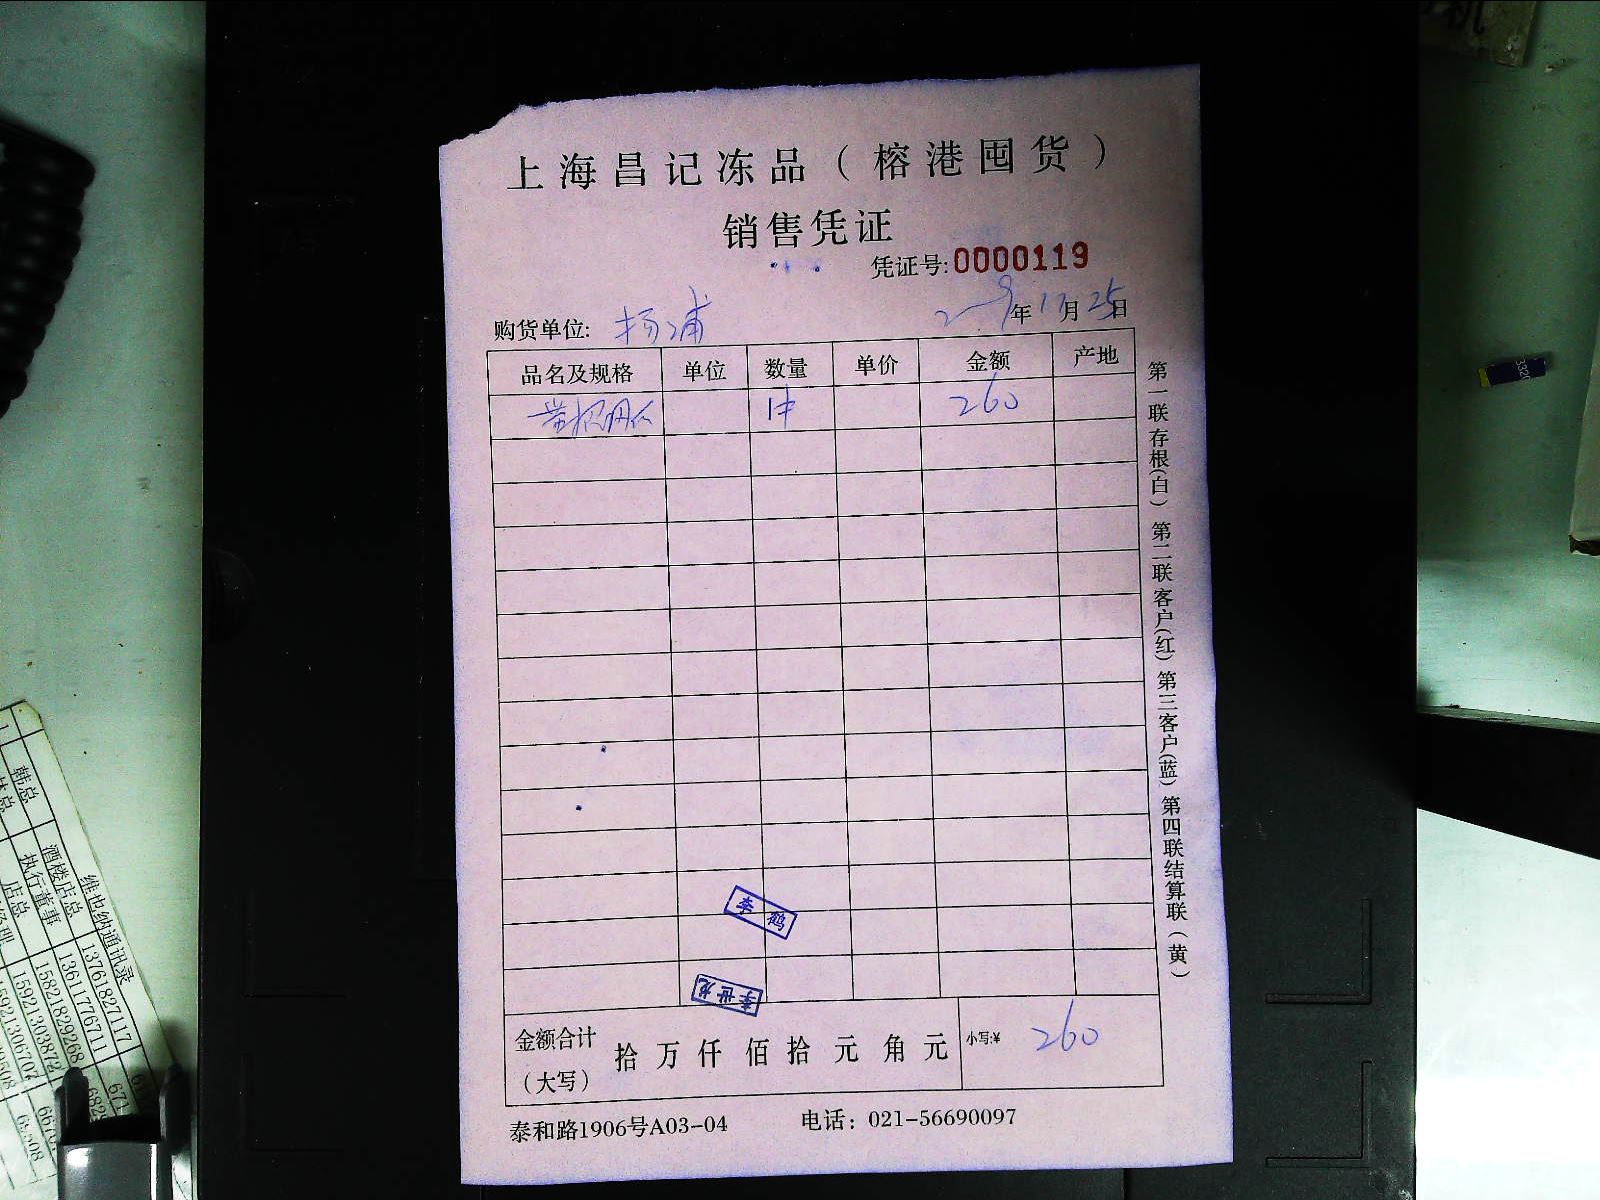 上海昌记冻品（榕港囤货）
销售凭证
凭证号:0000119
购货单位: 杨浦 年11月25日
品名及规格 单位 数量 单价 金额 产地
1件 260
李鹤
李世龙
金额合计（大写） 拾万仟佰拾元角元 小写:¥ 260
泰和路1906号A03-04 电话：021-56690097
第一联存根(白) 第二联客户(红) 第三客户(蓝) 第四联结算联(黄)
维也纳通讯录
韩总
酒楼店总 13761827117
执行董事 13611776711
店总 15821829268
15921303872
15921306702